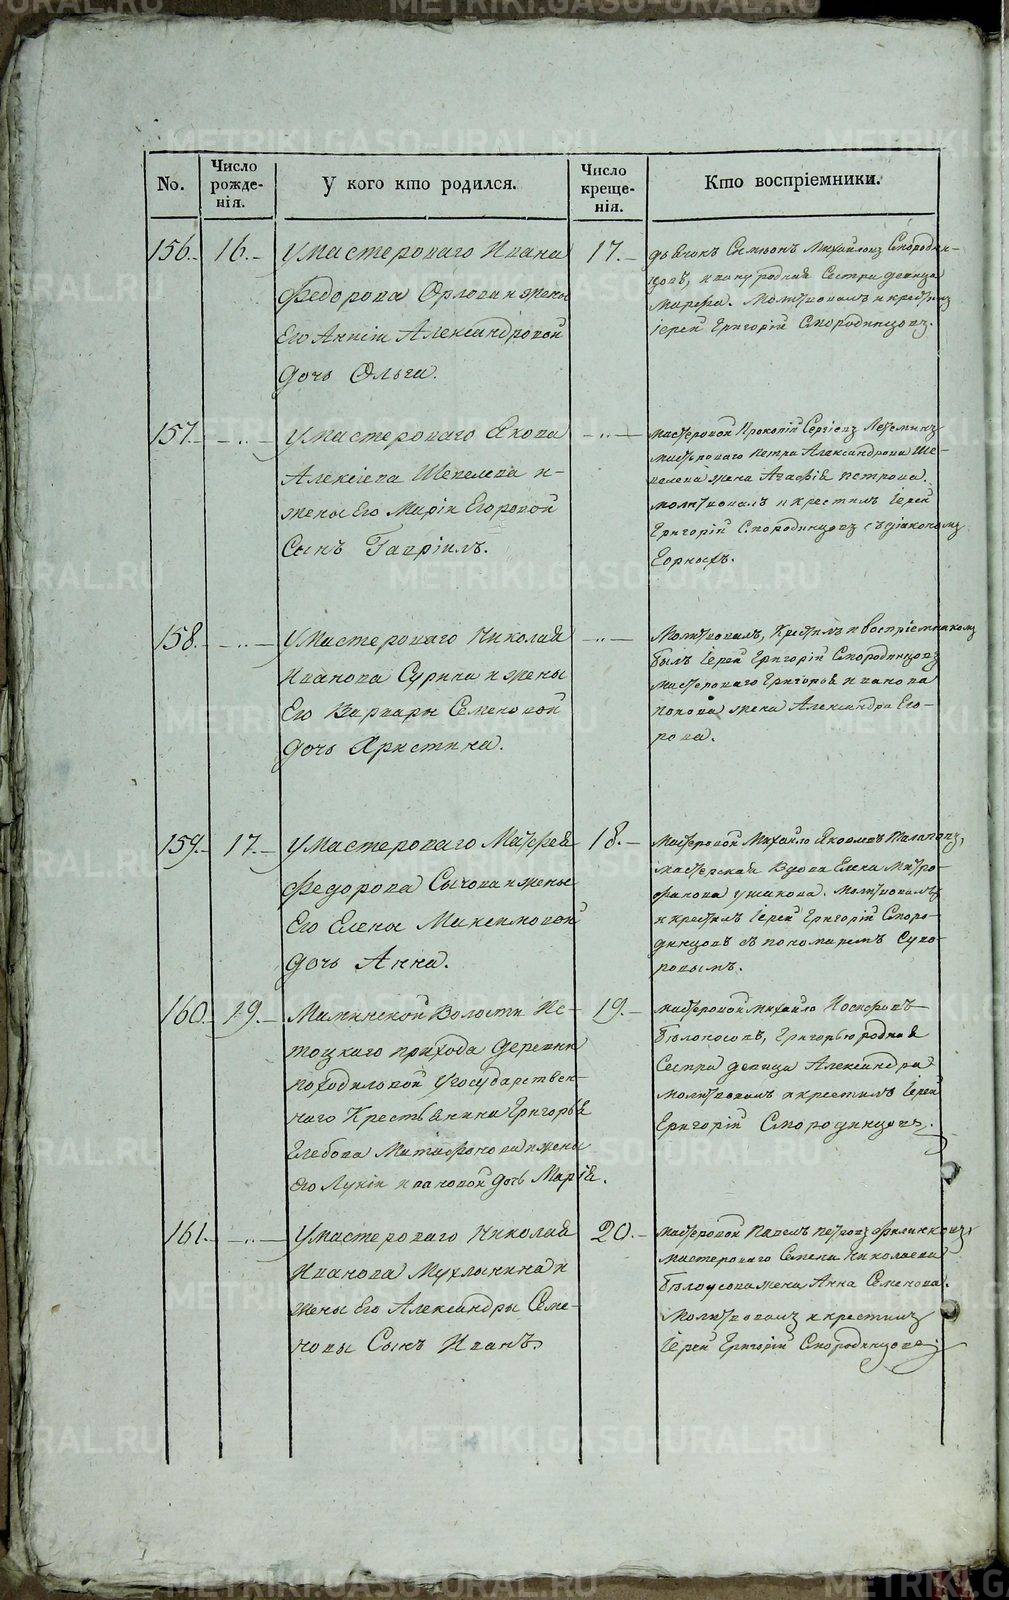 No.
Число рожде-нія.
У кого кто родился.
Число креще-нія.
Кто воспріемники.
156.
16.
У мастероваго Ивана
Федорова Орлова и жены
Его Александровой
дочь Ольга.
17.
Михайловъ
родная Сестра девица
Марфа. Молитвовалъ и крестилъ
Іерей Григорій Смородинцовъ.
157.
У мастероваго Якова
Алексіева Шепелева и
жены Его Маріи Егоровой
Сынъ Гавріилъ.
Мастеровой Прокопій Сергіевъ
мастероваго Петра Александрова Ше-
пелева жена Агафія Петрова.
молитвовалъ и крестилъ Іерей
Григорій Смородинцовъ
158.
У мастероваго Николая
Иванова Сурина и жены
Его Варвары Семеновой
дочь Христина.
Молитвовалъ, Крестилъ и Воспріемникомъ
былъ Іерей Григорій Смородинцовъ
мастероваго Григорія Иванова
Попова жена Александра Его-
рова.
159.
17.
У мастероваго Матфея
Федорова Сычова и жены
Его Елены Максимовой
дочь Анна.
18.
Мастеровой Михайло Яковлевъ
мастерская Вдова Елена Митро-
фанова Ушакова. Молитвовалъ
и крестилъ Іерей Григорій Сморо-
динцовъ съ пономаремъ Суво-
ровымъ.
160.
19.
Маминской Волости Ис-
тоцкаго прихода деревни
Походиловой У государствен-
наго Крестьянина Григорья
Глебова Митрофанова и жены
Его Лукіи Ивановой дочь Марія.
19.
Мастеровой Михайло Иосифовъ
Бѣлоносовъ, Григорью родная
Сестра девица Александра
молитвовалъ и крестилъ Іерей
Григорій Смородинцовъ.
161.
У мастероваго Николая
Иванова Мухлынина и
жены Его Александры Семе-
новы Сынъ Иванъ.
20.
Мастеровой Павелъ Петровъ
мастероваго Семена Николаева
Бѣлоусова жена Анна Семенова.
Молитвовалъ и крестилъ
Іерей Григорій Смородинцовъ
METRIKI.GASO-URAL.RU